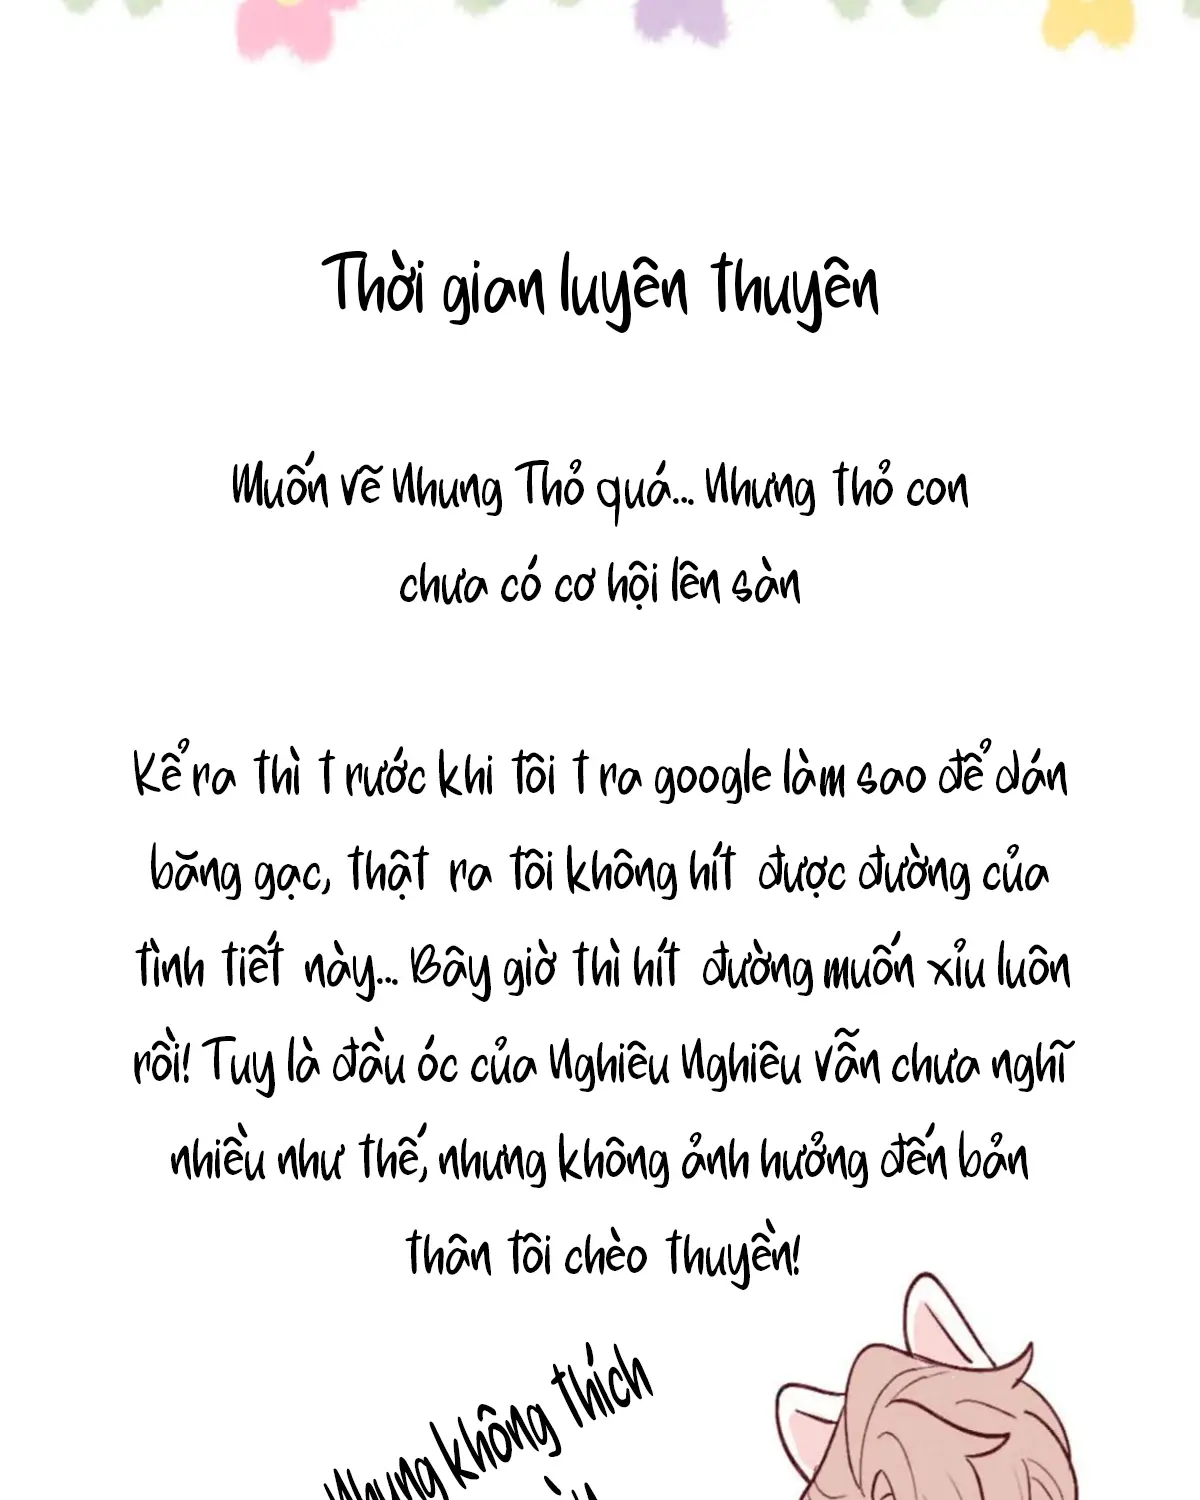 Thời gian luyên thuyên
Muốn vẽ Nhung Thỏ quá... Nhưng thỏ con
chưa có cơ hội lên sàn
Kể ra thì trước khi tôi tra google làm sao để dán
băng gạc, thật ra tôi không hít được đường của
tình tiết này... Bây giờ thì hít đường muốn xỉu luôn
rồi! Tuy là đầu óc của Nghiêu Nghiêu vẫn chưa nghĩ
nhiều như thế, nhưng không ảnh hưởng đến bản
thân tôi chèo thuyền!
Nhung không thích